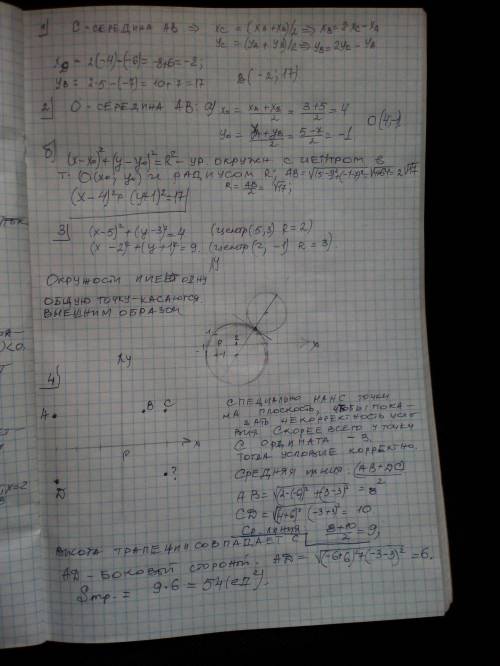 1) C - СЕРЕДИНА AB ⇒ xc = (xA+xB)/2 ⇒ xB = 2xc - xA
yc = (yA+yB)/2 ⇒ yB = 2yc - yA
xB = 2(-4)-(-6) = -8+6 = -2;
yB = 2·5-(-7) = 10+7 = 17 B(-2; 17)
2) O - СЕРЕДИНА AB: a) xo = xA+xB/2 = 3+5/2 = 4
yo = yA+yB/2 = 5-7/2 = -1 O(4,-1)
б) (x-xo)²+(y-yo)²=R² - УР. ОКРУЖН С ЦЕНТРОМ В
Т. O(xo; yo) И РАДИУСОМ R;
R = AB/2 = √17;
(x-4)²+(y+1)²=17
3) (x-5)²+(y-3)²=4 (центр(5,3) R=2)
(x-2)²+(y+1)²=9. (центр(2,-1) R=3)
ОКРУЖНОСТИ ИМЕЮТ ОДНУ
ОБЩУЮ ТОЧКУ - КАСАЮТСЯ
ВНЕШНИМ ОБРАЗОМ
y
x
4)
y
A B C
x
D ?
СПЕЦИАЛЬНО НАНС ТОЧКИ
НА ПЛОСКОСТЬ, ЧТОБЫ ПОКА-
ЗАТЬ НЕКОРРЕКТНОСТЬ УСЛО-
ВИЯ. СКОРЕЕ ВСЕГО У ТОЧКИ
C ОРДИНАТА -3,
ТОГДА УСЛОВИЕ КОРРЕКТНО.
СРЕДНЯЯ ЛИНИЯ: (AB+DC)/2
AB = √(2-(-6))²+(3-3)² = 8
CD = √(4+6)²+(-3+3)² = 10
Ср. линия: 8+10/2 = 9,
ВЫСОТА ТРАПЕЦИИ СОВПАДАЕТ С
AD - БОКОВОЙ СТОРОНОЙ. AD = √(-6+6)²+(-3-3)² = 6.
Sтр. = 9·6 = 54(ед²).